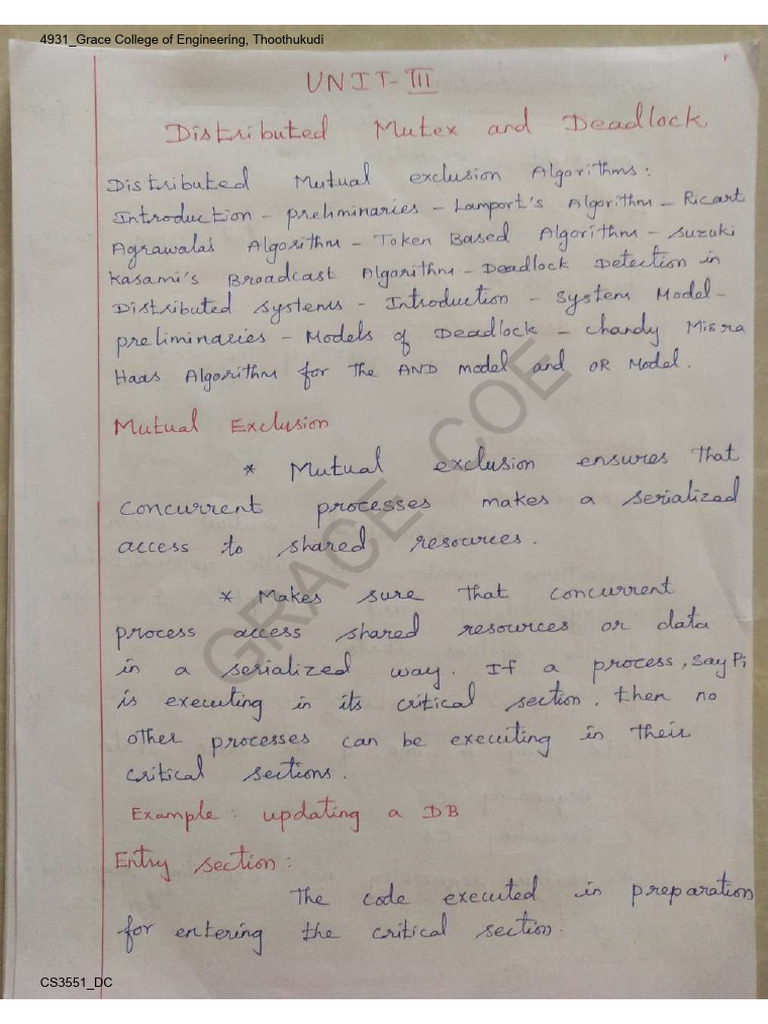 4931_Grace College of Engineering, Thoothukudi
1
UNIT-III
Distributed Mutex and Deadlock
Distributed Mutual exclusion Algorithms:
Introduction - preliminaries - Lamport's Algorithm - Ricart
Agrawala's Algorithm - Token Based Algorithm - Suzuki
Kasami's Broadcast Algorithm - Deadlock Detection in
Distributed systems - Introduction - System Model -
preliminaries - Models of Deadlock - Chandy Misra
Haas Algorithm for the AND model and OR Model.
Mutual Exclusion
* Mutual exclusion ensures that
concurrent processes makes a serialized
access to shared resources.
* Makes sure that concurrent
process access shared resources or data
in a serialized way. If a process, say Pi
is executing in its critical section. then no
other processes can be executing in their
critical sections.
Example: updating a DB
Entry section:
The code executed in preparation
for entering the critical section.
GRACE COE
CS3551_DC